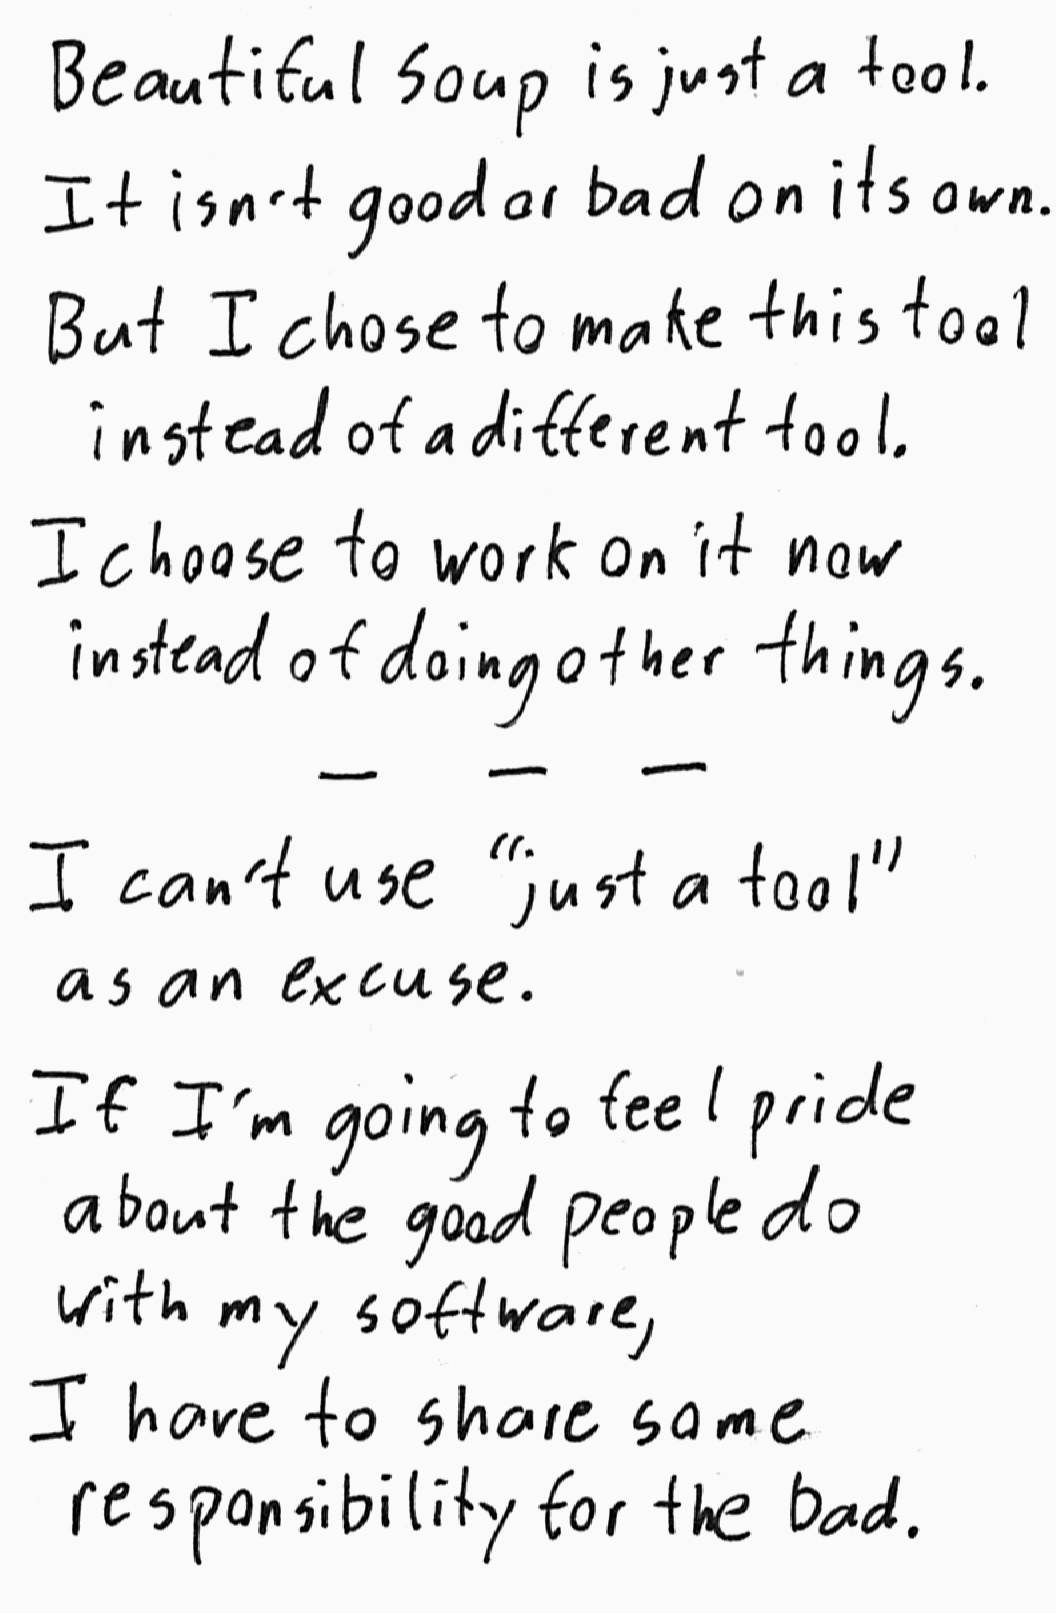 Beautiful Soup is just a tool.
It isn't good or bad on its own.
But I chose to make this tool
instead of a different tool.
I choose to work on it now
instead of doing other things.
— — —
I can't use "just a tool"
as an excuse.
If I'm going to feel pride
about the good people do
with my software,
I have to share some
responsibility for the bad.